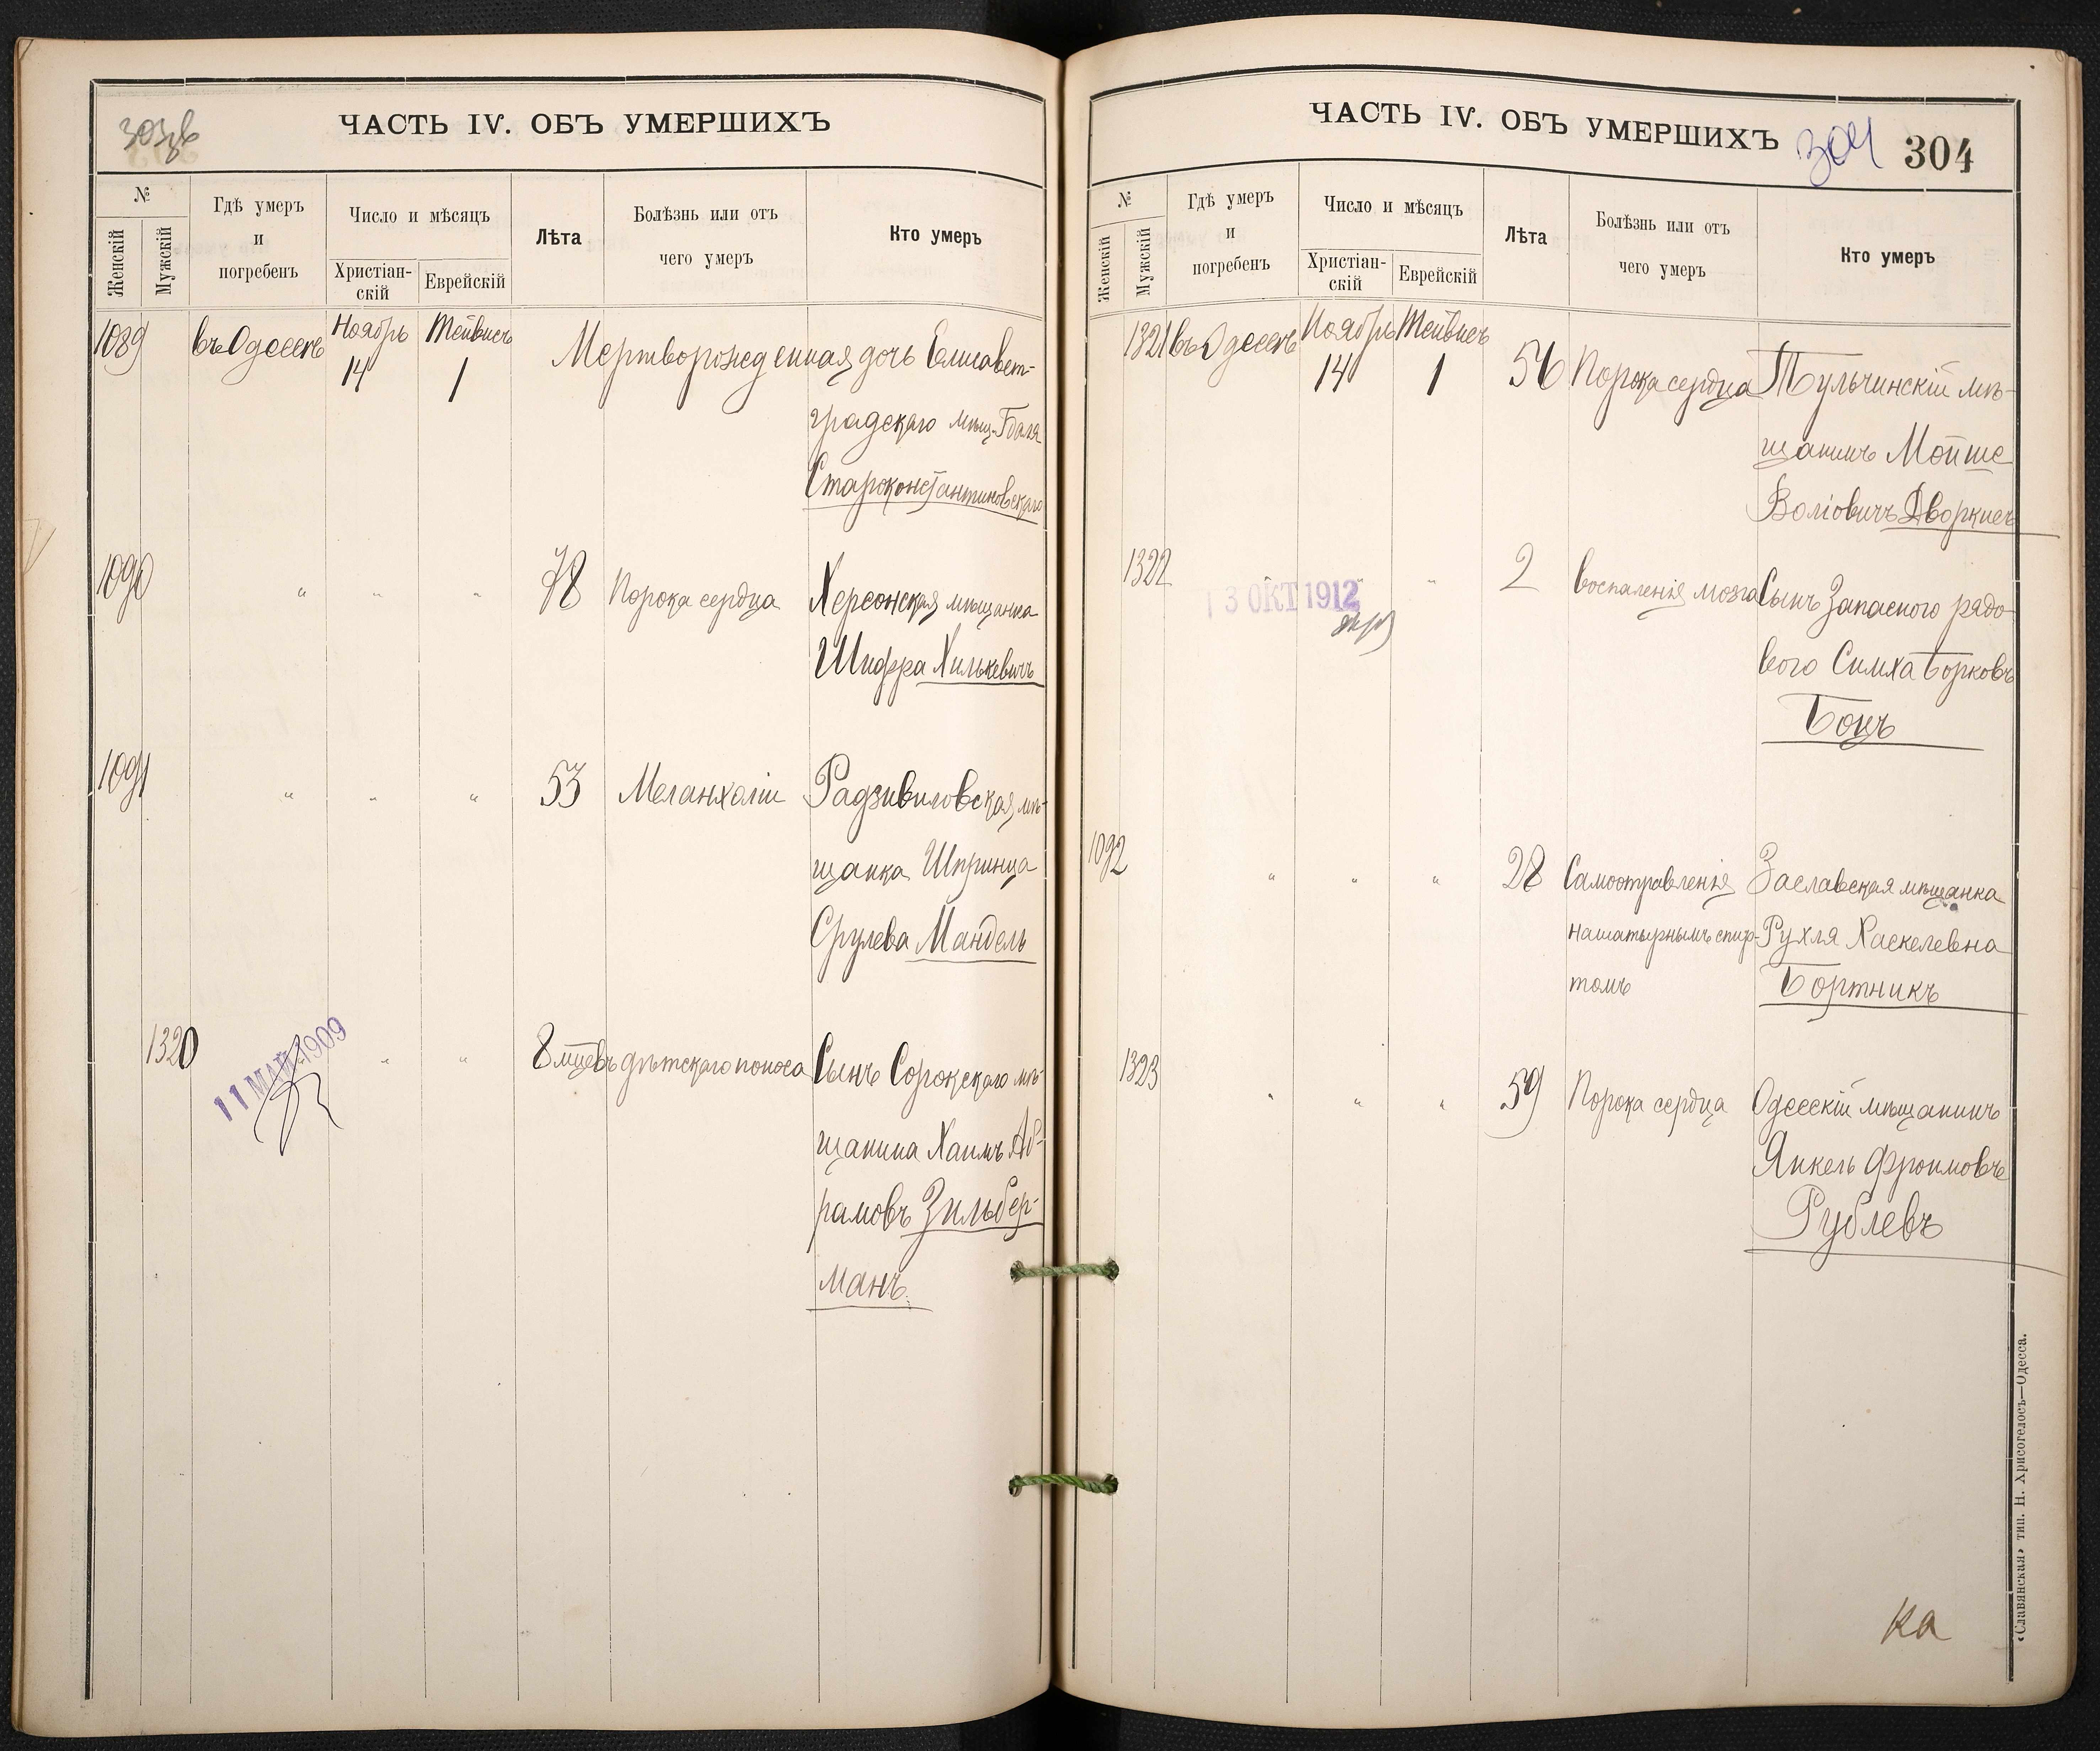 303об
ЧАСТЬ IV. ОБЪ УМЕРШИХЪ
№
Женскій
Мужскій
Гдѣ умеръ
и
погребенъ
Число и мѣсяцъ
Христіан-
скій
Еврейскій
Лѣта
Болѣзнь или отъ
чего умеръ
Кто умеръ
1089 въ Одессѣ Ноябрь 14 Тейвисъ 1 Мертворожденная дочь Елисавет-
градскаго мѣщ.
Староконстантиновскаго
1090 " " " 78 Порока сердца Херсонская мѣщанка
Шифра Хилькевичъ
1091 " " " 53 Меланхоліи Радзивиловская мѣ-
щанка Шпринца
Срулева Мандель
1320 " " " 8 мцевъ дѣтскаго поноса Сынъ Сорокскаго мѣ-
щанина Хаимъ Аб-
рамовъ Зильбер-
манъ
11 МАЙ 1909
ЧАСТЬ IV. ОБЪ УМЕРШИХЪ
304
304
№
Женскій
Мужскій
Гдѣ умеръ
и
погребенъ
Число и мѣсяцъ
Христіан-
скій
Еврейскій
Лѣта
Болѣзнь или отъ
чего умеръ
Кто умеръ
1321 въ Одессѣ Ноябрь 14 Тейвисъ 1 56 Порока сердца Тульчинскій мѣ-
щанинъ Мойше
Воліовичъ Дворкисъ
1322 " " " 2 воспаленія мозга Сынъ Запаснаго рядо-
вого Симха Борковъ
Боцъ
13 ОКТ 1912
1092 " " " 28 Самоотравленія Заславская мѣщанка
нашатырнымъ спир- Рухля Хаскелевна
томъ Бортникъ
1323 " " " 59 Порока сердца Одесскій мѣщанинъ
Янкель Фроимовъ
Рублевъ
ка
«Славянская» тип. Н. Хрисогелосъ—Одесса.